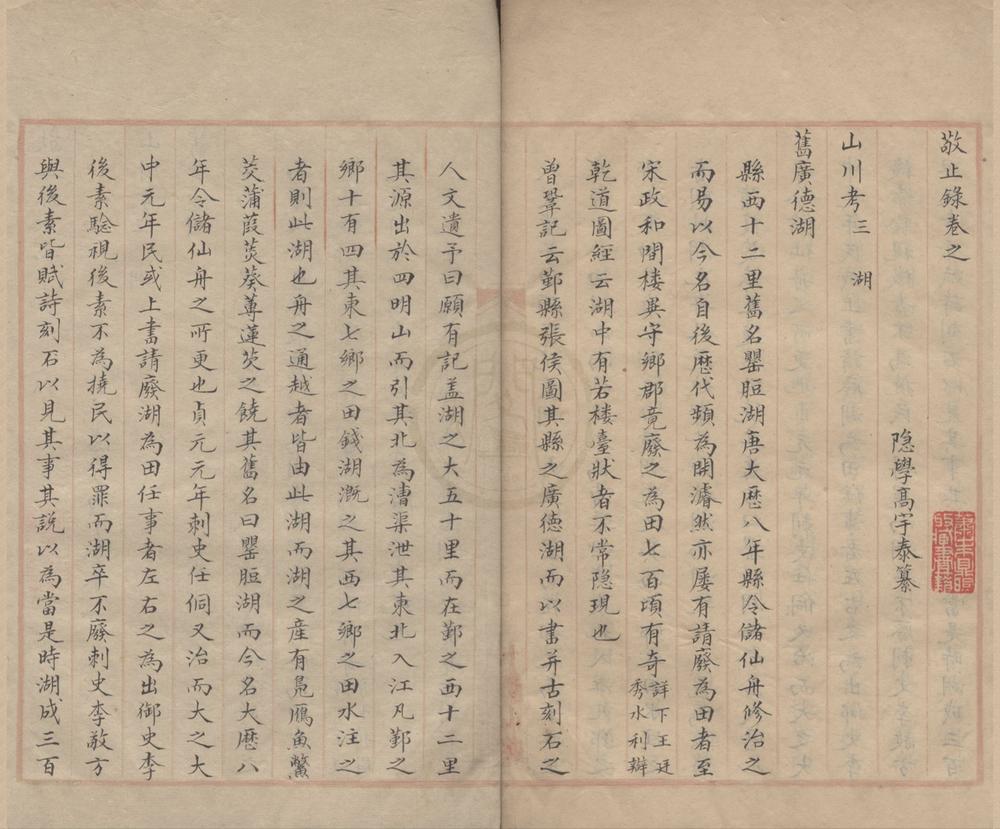 敬止錄卷之
隱學髙宇泰纂
山川考三　湖
舊廣德湖
縣西十二里舊名罌脰湖唐大歷八年縣令儲仙舟修治之
而易以今名自後歷代頻為開濬然亦屢有請廢為田者至
宋政和間楼异守鄉郡竟廢之為田七百頃有奇詳下王廷秀水利辦
乾道圖經云湖中有若楼臺狀者不常隐現也
曾鞏記云鄞縣張侯圖其縣之廣德湖而以書并古刻石之
人文遺予曰願有記盖湖之大五十里而在鄞之西十二里
其源出於四明山而引其北為漕渠泄其東北入江凡鄞之
鄉十有四其東七鄉之田錢湖溉之其西七鄉之田水注之
者則此湖也舟之通越者皆由此湖而湖之産有鳬鴈魚鱉
茭蒲葭菼葵蓴蓮芡之饒其舊名曰罌脰湖而今名大歷八
年令儲仙舟之所更也貞元元年刺史任侗又治而大之大
中元年民或上書請廢湖為田任事者左右之為出御史李
後素驗視後素不為撓民以得罪而湖卒不廢刺史李敬方
與後素皆賦詩刻石以見其事其説以為當是時湖成三百